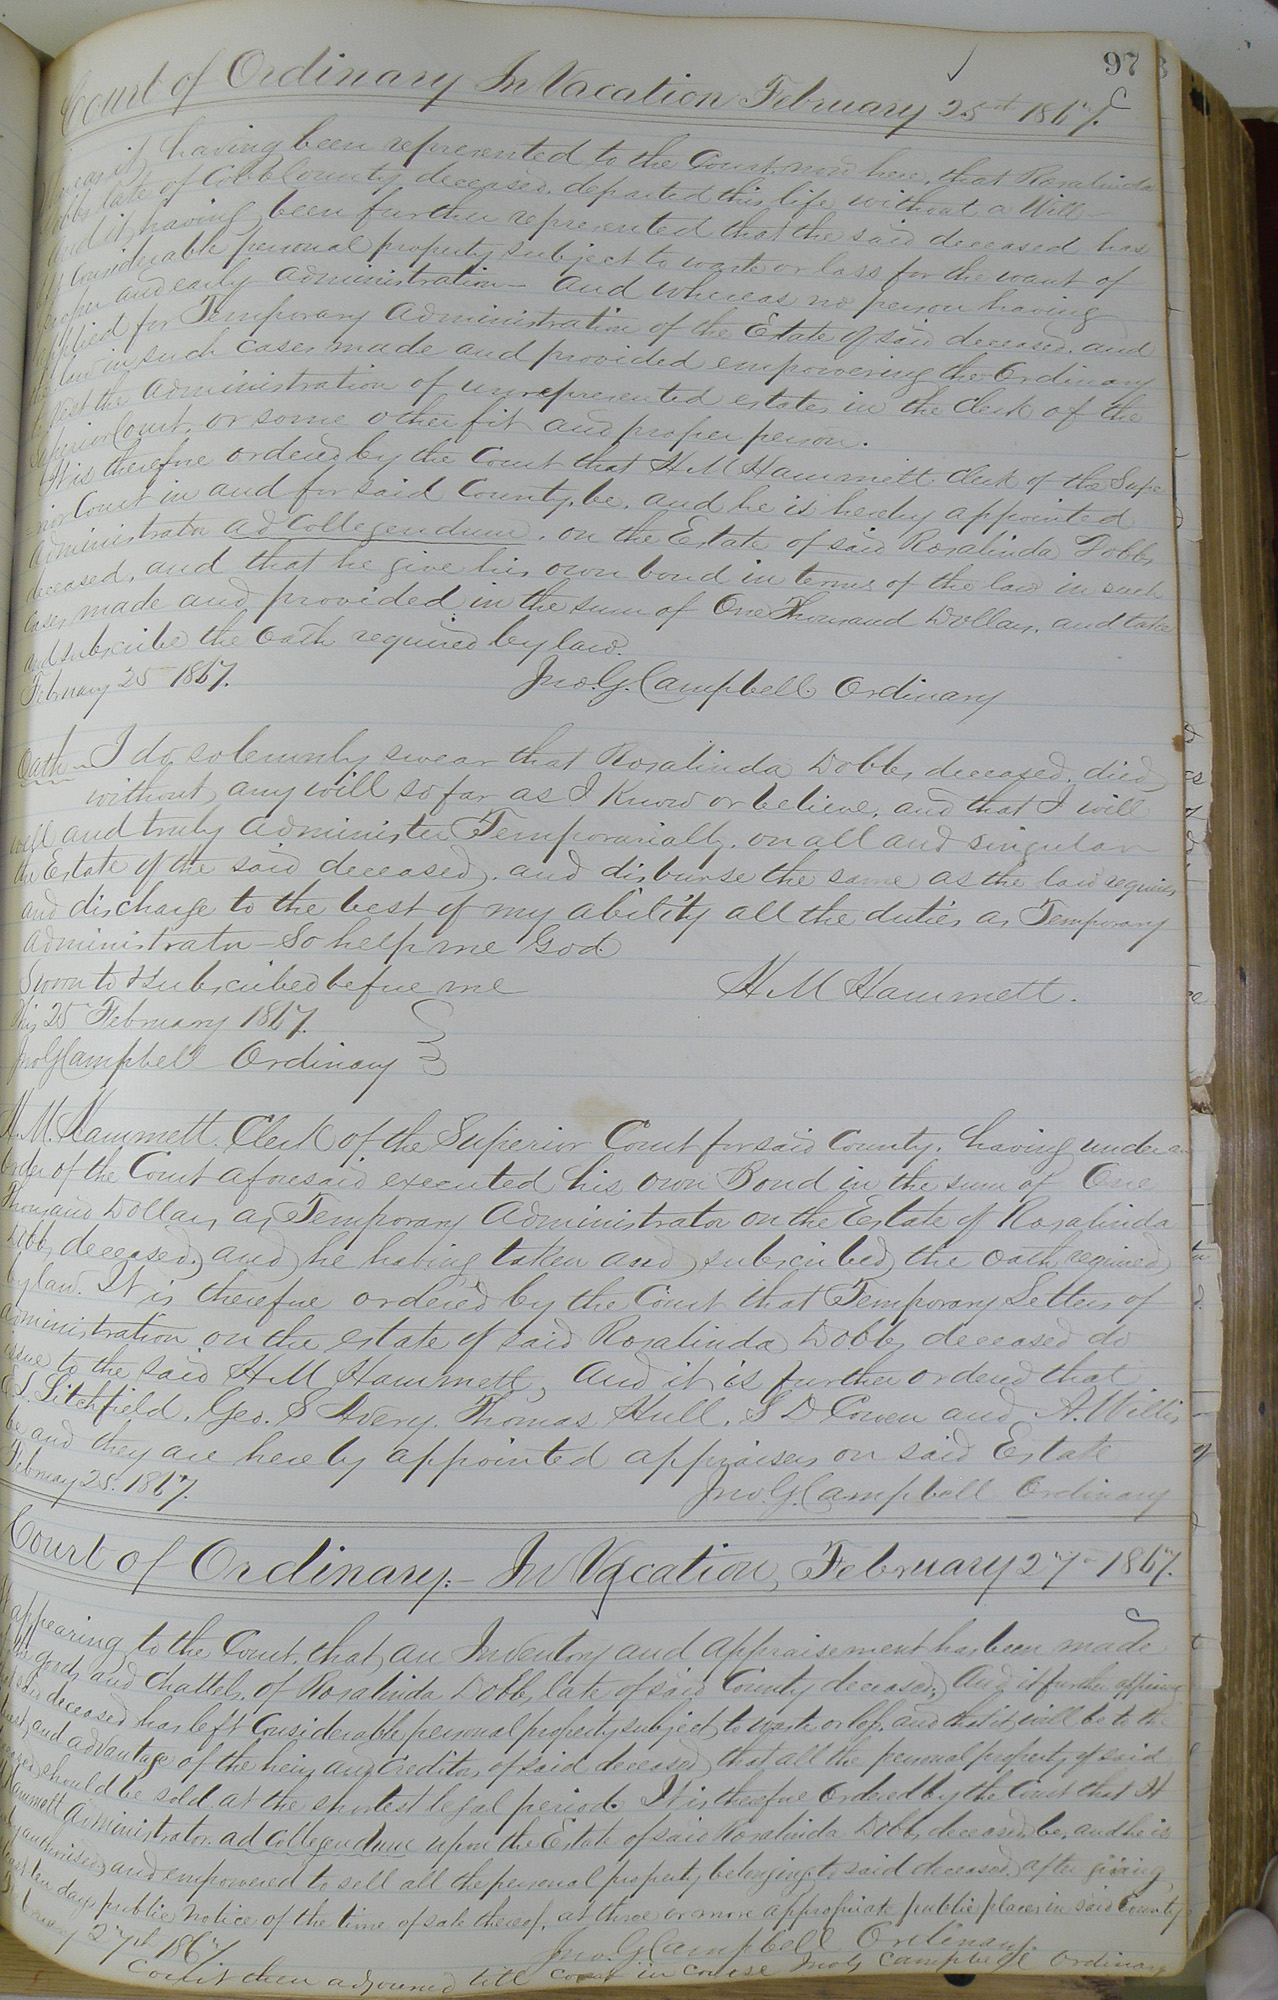 97
Court of Ordinary In Vacation February 25th 1867.
Whereas it having been represented to the Court now here, that Rosalinda
Dobbs late of Cobb County deceased, departed this life without a Will—
And it having been further represented that the said deceased has
left Considerable personal property subject to waste or loss for the want of
proper and early administration— And whereas no person having
applied for Temporary Administration of the Estate of said deceased, and
the law in such cases made and provided empowering the Ordinary
to vest the administration of unrepresented estates in the Clerk of the
Superior Court, or some other fit and proper person.
It is therefore ordered by the Court that H M Hammett Clerk of the Supe
-rior Court in and for said County, be, and he is hereby appointed
Administrator ad Collegendum, on the Estate of said Rosalinda Dobbs
deceased, and that he give his own bond in terms of the law in such
cases made and provided in the sum of One Thousand Dollars, and take
and subscribe the Oath required by law.
February 25 1867. Jno. G. Campbell Ordinary
Oath— I do solemnly swear that Rosalinda Dobbs, deceased, died
without any will so far as I know or believe, and that I will
well and truly administer Temporarially, on all and singular
the Estate of the said deceased, and disburse the same as the law requires
and discharge to the best of my ability all the duties as Temporary
Administrator— So help me God
Sworn to & subscribed before me H M Hammett.
This 25 February 1867.
Jno G Campbell Ordinary
H. M. Hammett, Clerk of the Superior Court for said County, having under an
Order of the Court aforesaid executed his own Bond in the sum of One
Thousand Dollars, as Temporary Administrator on the Estate of Rosalinda
Dobbs, deceased, and he having taken and subscribed the oath required
by law. It is therefore ordered by the Court that Temporary Letters of
Administration on the estate of said Rosalinda Dobbs deceased do
issue to the said H M Hammett, And it is further ordered that
L. Litchfield, Geo. S Avery, Thomas Hull, S D Cowen and A. Willis
be and they are hereby appointed appraisers on said Estate
February 25. 1867. Jno. G. Campbell Ordinary
Court of Ordinary:— In Vacation, February 27— 1867.
It appearing to the Court, that an Inventory and appraisement has been made
of the goods and Chattels, of Rosalinda Dobbs, late of said County deceased, And it further appearing
that said deceased has left Considerable personal property subject to waste or loss, and that it will be to the
interest and advantage of the heirs and Creditors of said deceased, that all the personal property of said
deceased, should be sold at the shortest legal period. It is therefore Ordered by the Court that H
M Hammett Administrator ad Collegendum upon the Estate of said Rosalinda Dobbs, deceased, be, and he is
hereby authorised, and empowered to sell all the personal property belonging to said deceased, after giving
at least ten days public notice of the time of sale thereof, at three or more appropriate public places in said County
February 27th 1867 Jno. G Campbell Ordinary
Court then adjourned till Court in course Jno G Campbell Ordinary